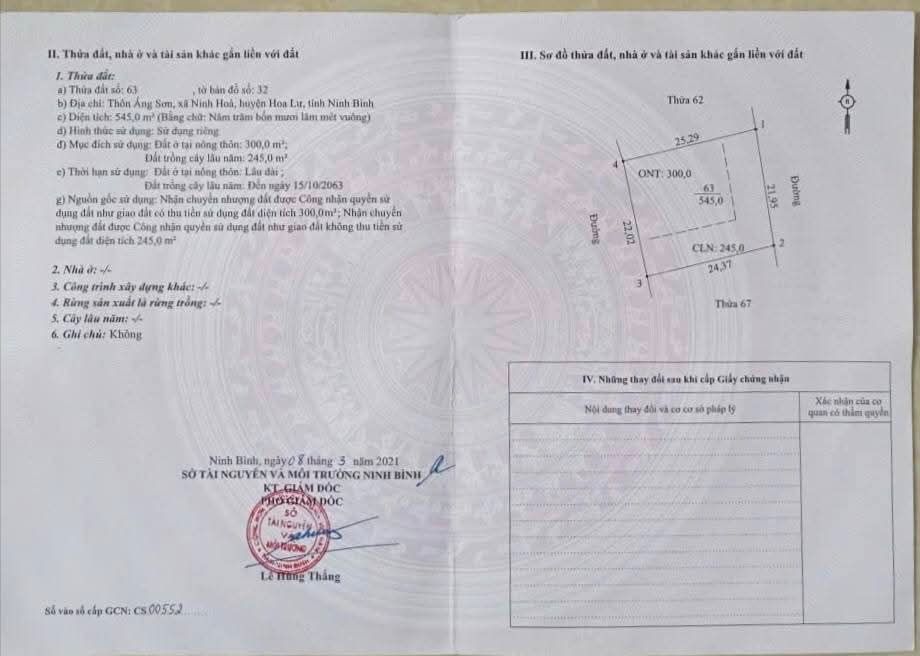 II. Thửa đất, nhà ở và tài sản khác gắn liền với đất
1. Thửa đất:
a) Thửa đất số: 63 , tờ bản đồ số: 32
b) Địa chỉ: Thôn Áng Sơn, xã Ninh Hoà, huyện Hoa Lư, tỉnh Ninh Bình
c) Diện tích: 545,0 m² (Bằng chữ: Năm trăm bốn mươi lăm mét vuông)
d) Hình thức sử dụng: Sử dụng riêng
đ) Mục đích sử dụng: Đất ở tại nông thôn: 300,0 m²;
Đất trồng cây lâu năm: 245,0 m²
e) Thời hạn sử dụng: Đất ở tại nông thôn: Lâu dài ;
Đất trồng cây lâu năm: Đến ngày 15/10/2063
g) Nguồn gốc sử dụng: Nhận chuyển nhượng đất được Công nhận quyền sử
dụng đất như giao đất có thu tiền sử dụng đất diện tích 300,0m²; Nhận chuyển
nhượng đất được Công nhận quyền sử dụng đất như giao đất không thu tiền sử
dụng đất diện tích 245,0 m²
2. Nhà ở: -/-
3. Công trình xây dựng khác: -/-
4. Rừng sản xuất là rừng trồng: -/-
5. Cây lâu năm: -/-
6. Ghi chú: Không
Ninh Bình, ngày 08 tháng 3 năm 2021
SỞ TÀI NGUYÊN VÀ MÔI TRƯỜNG NINH BÌNH
KT. GIÁM ĐỐC
PHÓ GIÁM ĐỐC
SỞ
TÀI NGUYÊN
VÀ
MÔI TRƯỜNG
Lê Hùng Thắng
Số vào sổ cấp GCN: CS 00552
III. Sơ đồ thửa đất, nhà ở và tài sản khác gắn liền với đất
Thửa 62
1
25,29
4
ONT: 300,0
63
545,0
21,95
Đường
Đường
22,02
CLN: 245,0
2
24,37
3
Thửa 67
IV. Những thay đổi sau khi cấp Giấy chứng nhận
Nội dung thay đổi và cơ cơ sở pháp lý
Xác nhận của cơ
quan có thẩm quyền